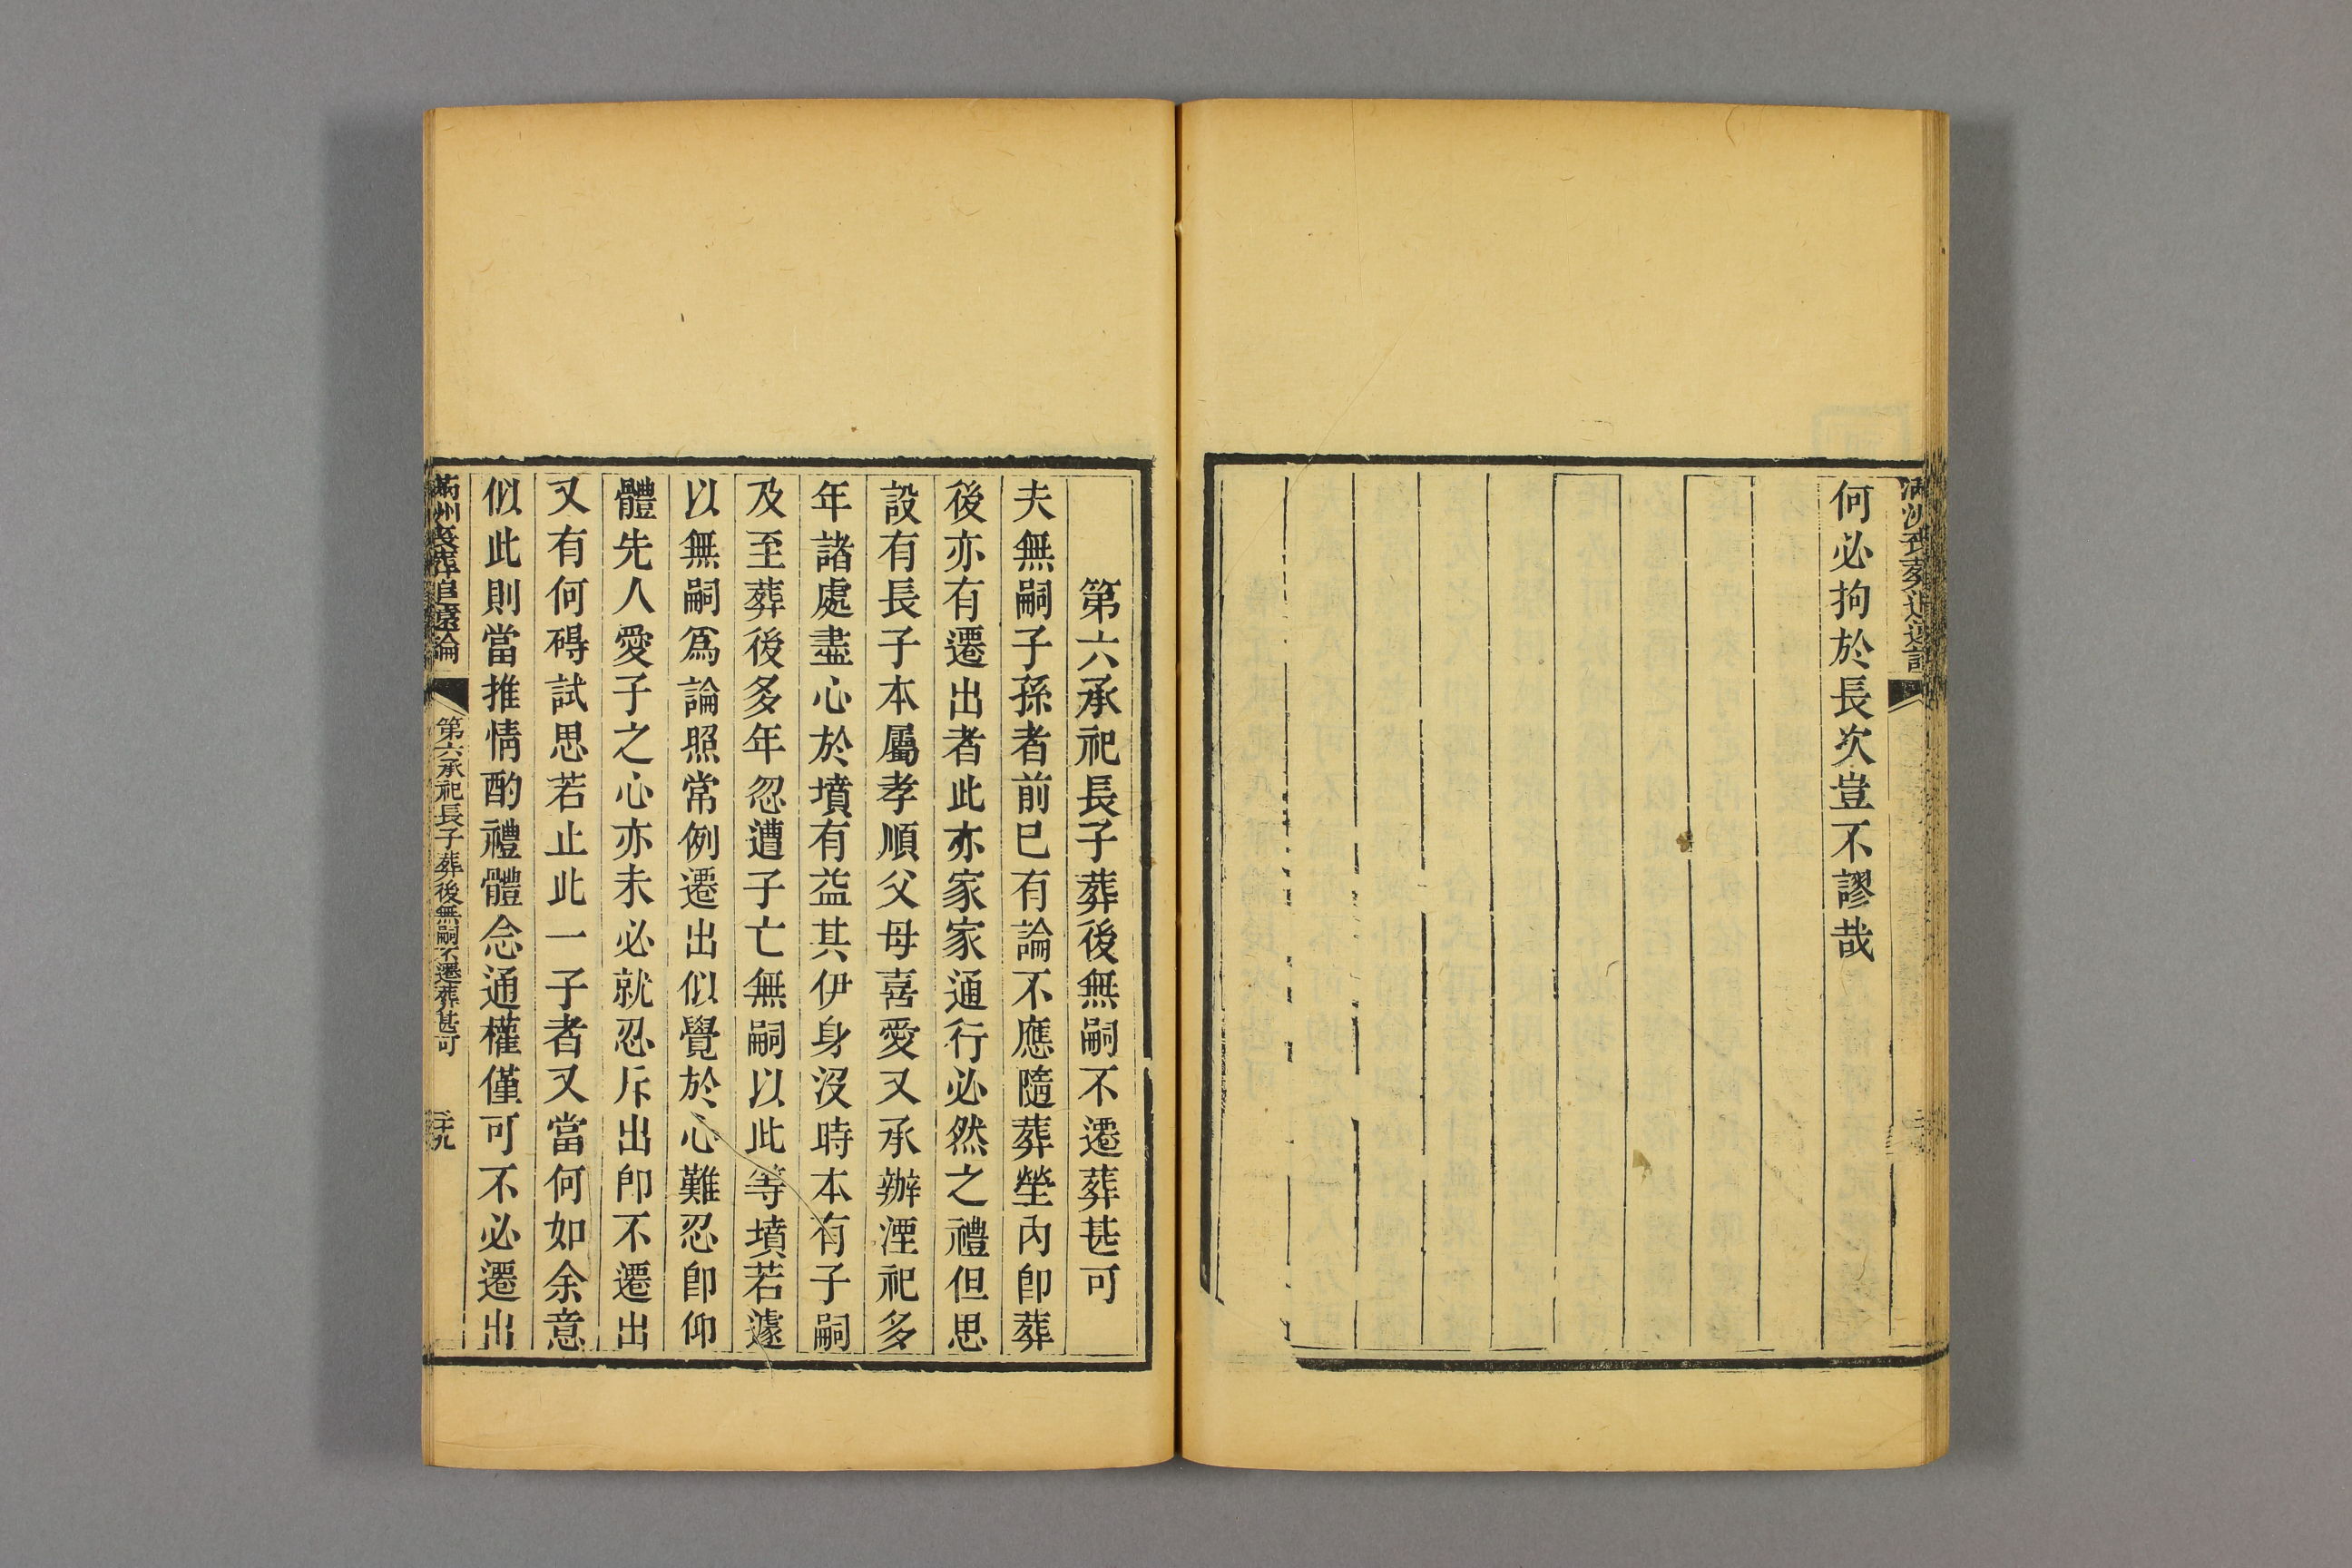 何必拘於長次豈不謬哉
第六承祀長子葬後無嗣不遷葬甚可
夫無嗣子孫者前已有論不應隨葬塋內卽葬
後亦有遷出者此亦家家通行必然之禮但思
設有長子本屬孝順父母喜愛又承辦湮祀多
年諸處盡心於墳有益其伊身沒時本有子嗣
及至葬後多年忽遭子亡無嗣以此等墳若遽
以無嗣爲論照常例遷出似覺於心難忍卽仰
體先人愛子之心亦未必就忍斥出卽不遷出
又有何碍試思若止此一子者又當何如余意
似此則當推情酌禮體念通權僅可不必遷出
滿州喪葬追遠論
第六承祀長子葬後無嗣不遷葬甚可
二十九